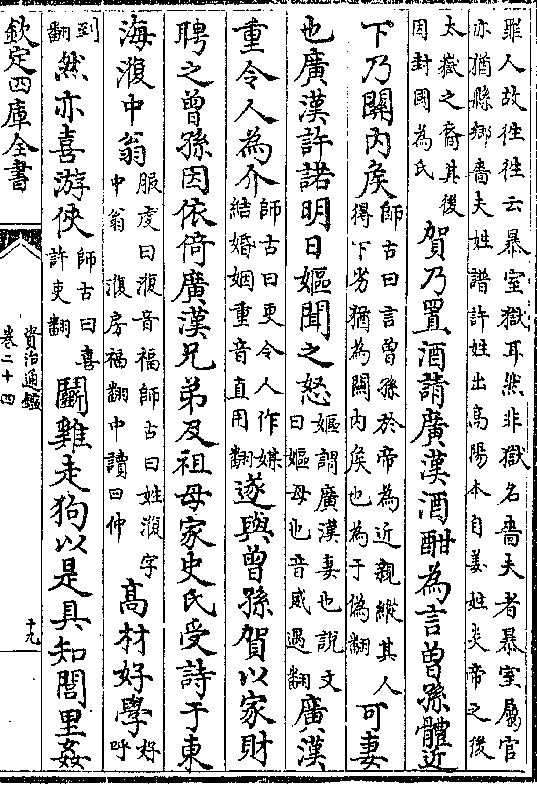 罪人故往往云暴室獄耳然非獄名嗇夫者暴室屬官
亦猶縣鄉嗇夫姓譜許姓出高陽本自姜姓炎帝之後
太嶽之裔其後
因封國為氏
賀乃置酒請廣漢酒酣為言曾孫體近
下乃關内侯
師古曰言曾孫於帝為近親縱其人
得下劣猶為關内侯也為于偽翻
可妻
也廣漢許諾明日嫗聞之怒
嫗謂廣漢妻也說文
曰嫗母也音威遇翻
廣漢
重令人為介
師古曰更令人作媒
結婚姻重音直用翻
遂與曾孫賀以家財
聘之曾孫因依倚廣漢兄弟及祖母家史氏受詩于東
海澓中翁
服虔曰澓音福師古曰姓澓字
中翁澓房福翻中讀曰仲
高材好學
好
呼
到
翻
然亦喜游俠
師古曰喜
許吏翻
鬭雞走狗以是具知閭里姦
欽定四庫全書
資治通鑑
卷二十四
十九